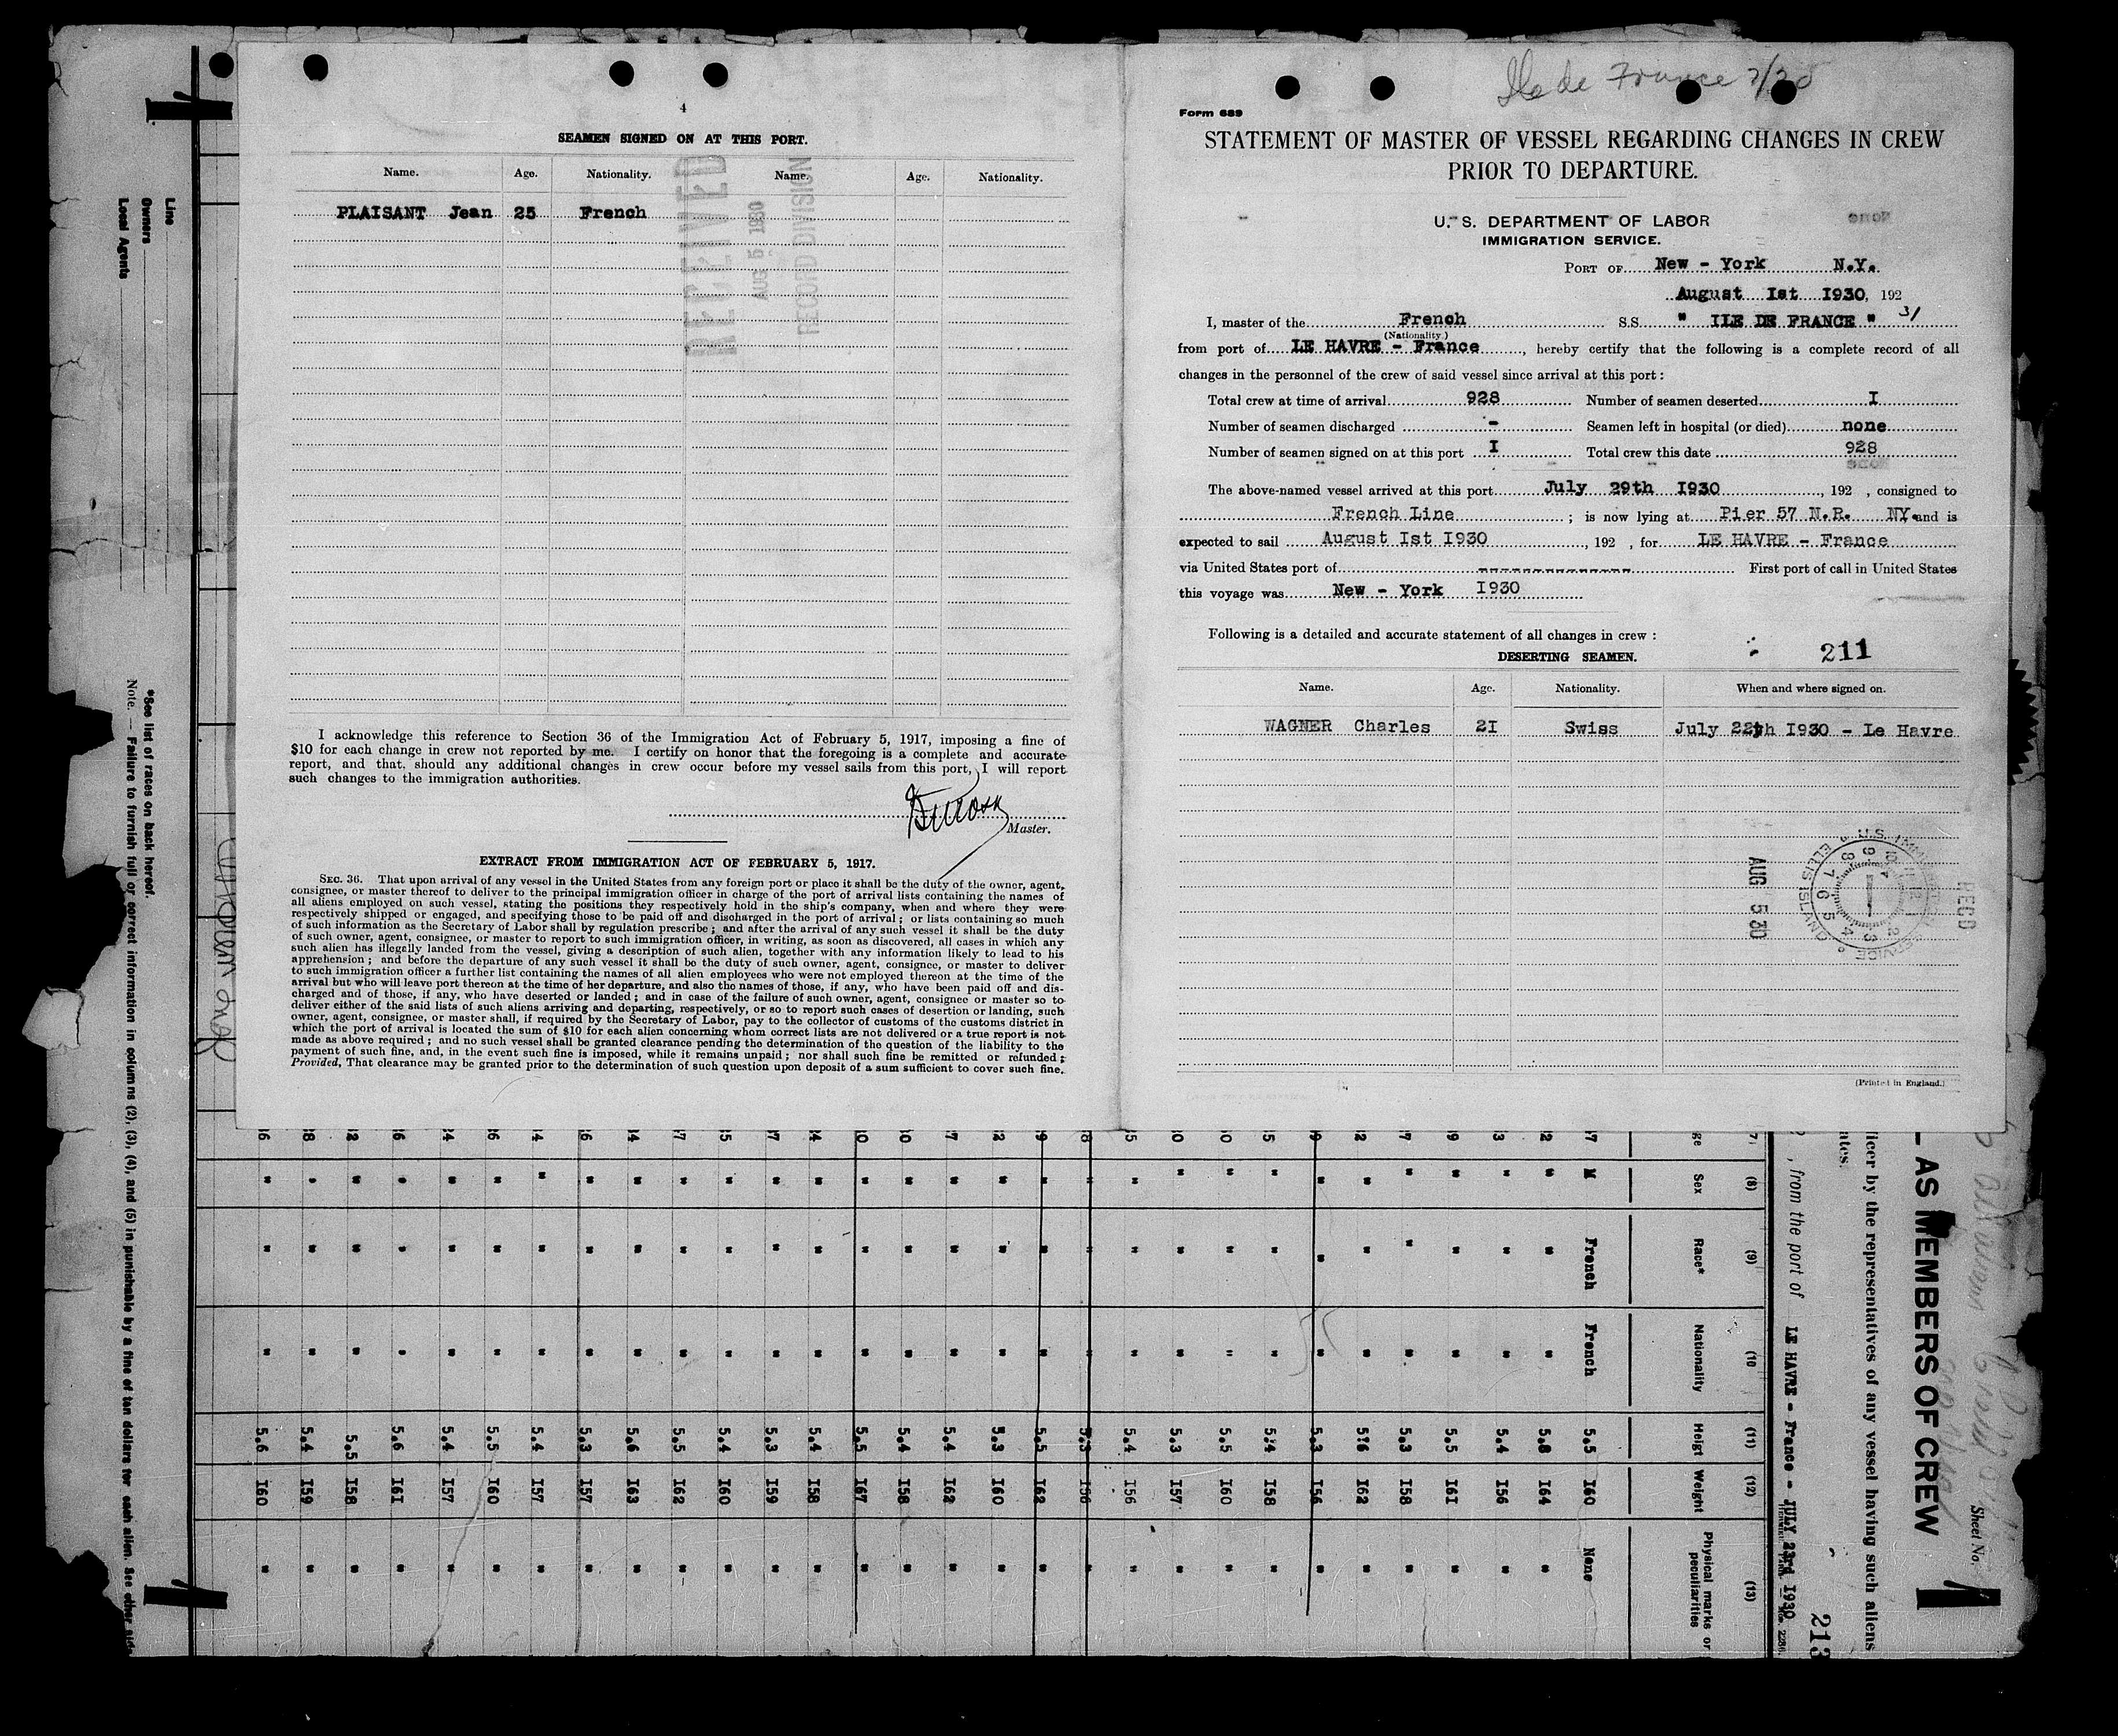 4
SEAMEN SIGNED ON AT THIS PORT.
Name. Age. Nationality. Name. Age. Nationality.
PLAISANT Jean 25 French
RECEIVED
AUG 5 1930
RECORD DIVISION
I acknowledge this reference to Section 36 of the Immigration Act of February 5, 1917, imposing a fine of
$10 for each change in crew not reported by me. I certify on honor that the foregoing is a complete and accurate
report, and that, should any additional changes in crew occur before my vessel sails from this port, I will report
such changes to the immigration authorities.
Master.
EXTRACT FROM IMMIGRATION ACT OF FEBRUARY 5, 1917.
SEC. 36. That upon arrival of any vessel in the United States from any foreign port or place it shall be the duty of the owner, agent,
consignee, or master thereof to deliver to the principal immigration officer in charge of the port of arrival lists containing the names of
all aliens employed on such vessel, stating the positions they respectively hold in the ship's company, when and where they were
respectively shipped or engaged, and specifying those to be paid off and discharged in the port of arrival; or lists containing so much
of such information as the Secretary of Labor shall by regulation prescribe; and after the arrival of any such vessel it shall be the duty
of such owner, agent, consignee, or master to report to such immigration officer, in writing, as soon as discovered, all cases in which any
such alien has illegally landed from the vessel, giving a description of such alien, together with any information likely to lead to his
apprehension; and before the departure of any such vessel it shall be the duty of such owner, agent, consignee, or master to deliver
to such immigration officer a further list containing the names of all alien employees who were not employed thereon at the time of the
arrival but who will leave port thereon at the time of her departure, and also the names of those, if any, who have been paid off and dis-
charged and of those, if any, who have deserted or landed; and in case of the failure of such owner, agent, consignee or master so to
deliver either of the said lists of such aliens arriving and departing, respectively, or so to report such cases of desertion or landing, such
owner, agent, consignee, or master shall, if required by the Secretary of Labor, pay to the collector of customs of the customs district in
which the port of arrival is located the sum of $10 for each alien concerning whom correct lists are not delivered or a true report is not
made as above required; and no such vessel shall be granted clearance pending the determination of the question of the liability to the
payment of such fine, and, in the event such fine is imposed, while it remains unpaid; nor shall such fine be remitted or refunded;
Provided, That clearance may be granted prior to the determination of such question upon deposit of a sum sufficient to cover such fine.
Ile de France 7/30
Form 689
STATEMENT OF MASTER OF VESSEL REGARDING CHANGES IN CREW
PRIOR TO DEPARTURE.
U. S. DEPARTMENT OF LABOR
IMMIGRATION SERVICE.
PORT OF New - York N.Y.
August 1st I930, 192
31
I, master of the French S.S. " ILE DE FRANCE "
(Nationality.)
from port of LE HAVRE - France, hereby certify that the following is a complete record of all
changes in the personnel of the crew of said vessel since arrival at this port:
Total crew at time of arrival 928 Number of seamen deserted I
Number of seamen discharged - Seamen left in hospital (or died) none
Number of seamen signed on at this port I Total crew this date 928
The above-named vessel arrived at this port July 29th I930, 192 , consigned to
French Line ; is now lying at Pier 57 N.R. NY. and is
expected to sail August Ist I930, 192 , for LE HAVRE - France
via United States port of --------------- First port of call in United States
this voyage was New - York I930
Following is a detailed and accurate statement of all changes in crew:
DESERTING SEAMEN.
211
Name. Age. Nationality. When and where signed on.
WAGNER Charles 2I Swiss July 22th I930 - Le Havre
U.S. IMMIGRATION SERVICE ELLIS ISLAND
AUG 5 30
RECD
(Printed in England.)
Line
Owners
Local Agents
*See list of races on back hereof.
Note. — Failure to furnish full or correct information in columns (2), (3), (4), and (5) in punishable by a fine of ten dollars for each alien. See other side
Sheet No.
AS MEMBERS OF CREW
ficer by the representatives of any vessel having such aliens
ates.
, from the port of LE HAVRE - France - JULY 23rd I930
213
(8) (9) (10 (11) (12) (13)
Sex Race* Nationality Heigt Weight Physical marks or peculiarities
M French French 5.5 I60 None
" " " 5.8 I64 "
" " " 5.4 I56 "
" " " 5.5 I6I "
" " " 5.3 I58 "
" " " 5.6 I62 "
" " " 5.3 I56 "
" " " 5.4 I58 "
" " " 5.5 I60 "
" " " 5.3 I57 "
" " " 5.4 I56 "
" " " 5.3 I56 "
" " " 5.5 I62 "
" " " 5.3 I60 "
" " " 5.4 I62 "
" " " 5.4 I58 "
" " " 5.5 I67 "
" " " 5.4 I58 "
" " " 5.3 I59 "
" " " 5.4 I60 "
" " " 5.5 I62 "
" " " 5.6 I63 "
" " " 5.3 I57 "
" " " 5.4 I57 "
" " " 5.5 I60 "
" " " 5.4 I57 "
" " " 5.6 I6I "
" " " 5.5 I58 "
" " " 5.4 I59 "
" " " 5.6 I60 "